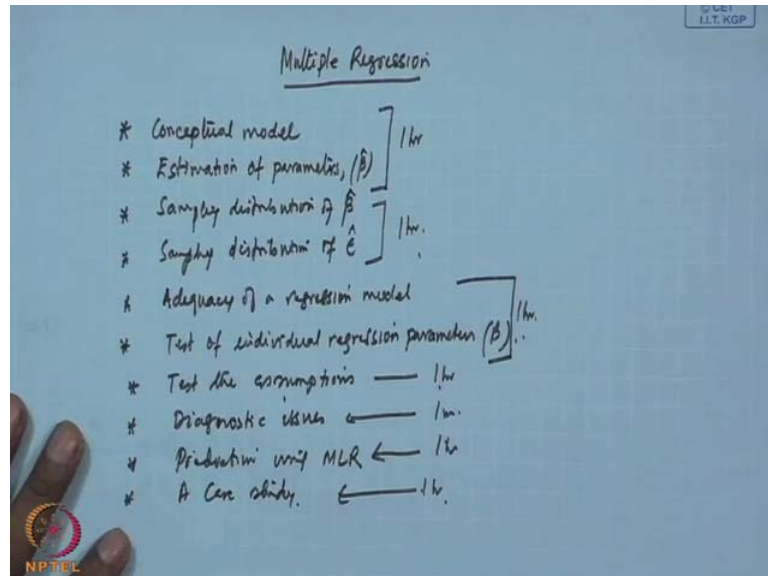 © CET
I.I.T. KGP
Multiple Regression
* Conceptual model
* Estimation of parameters, (β̂) ] 1 hr
* Sampling distribution of β̂
* Sampling distribution of ε̂ ] 1 hr.
* Adequacy of a regression model
* Test of individual regression parameters (β) ] 1 hr.
* Test the assumptions — 1 hr
* Diagnostic issues ← 1 hr.
* Prediction using MLR ← 1 hr
* A Case study. ← 1 hr.
NPTEL